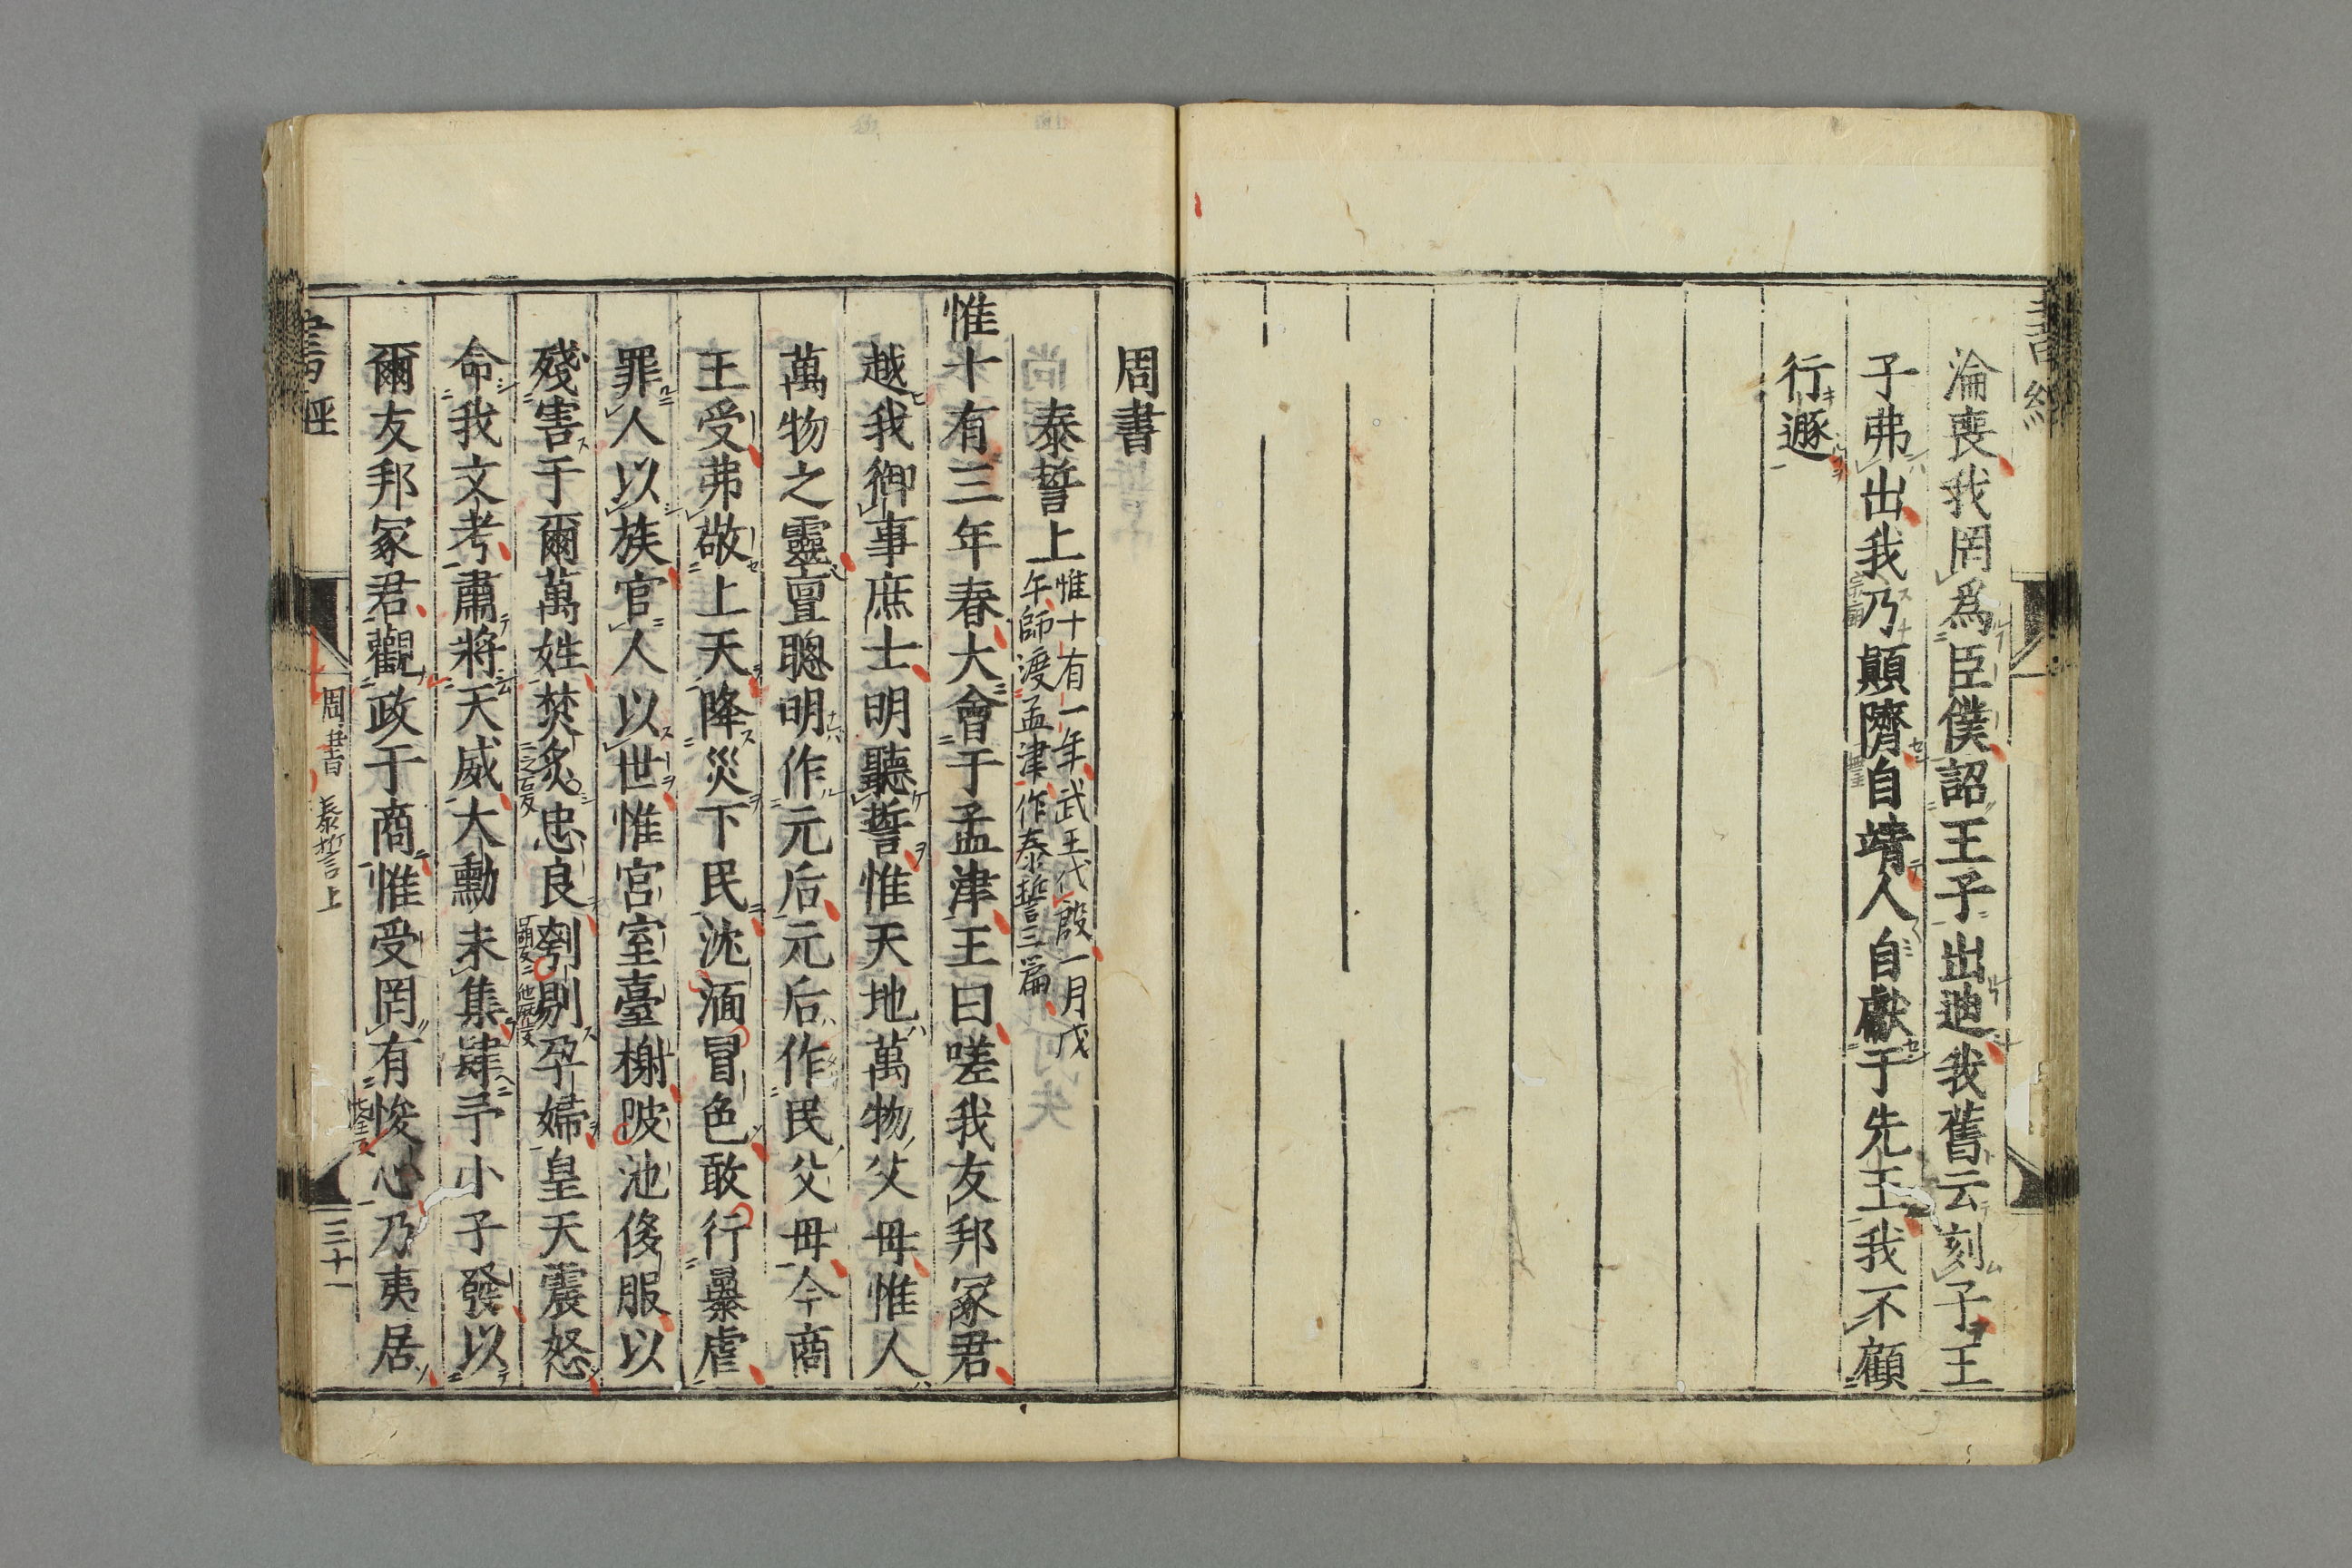 淪喪我罔爲臣僕詔王子出迪我舊云刻子王
子弗出我乃顛隮自靖人自獻于先王我不顧
行遯
周書
泰誓上
惟十有一年武王伐殷一月戊
午師渡孟津作泰誓三篇
惟十有三年春大會于孟津王曰嗟我友邦冢君
越我御事庶士明聽誓惟天地萬物父母惟人
萬物之靈亶聰明作元后元后作民父母今商
王受弗敬上天降災下民沈湎冒色敢行暴虐
罪人以族官人以世惟宮室臺榭陂池侈服以
殘害于爾萬姓焚炙忠良刳剔孕婦皇天震怒
命我文考肅將天威大勳未集肆予小子發以
爾友邦冢君觀政于商惟受罔有悛心乃夷居
書經
周書
泰誓上
三十一